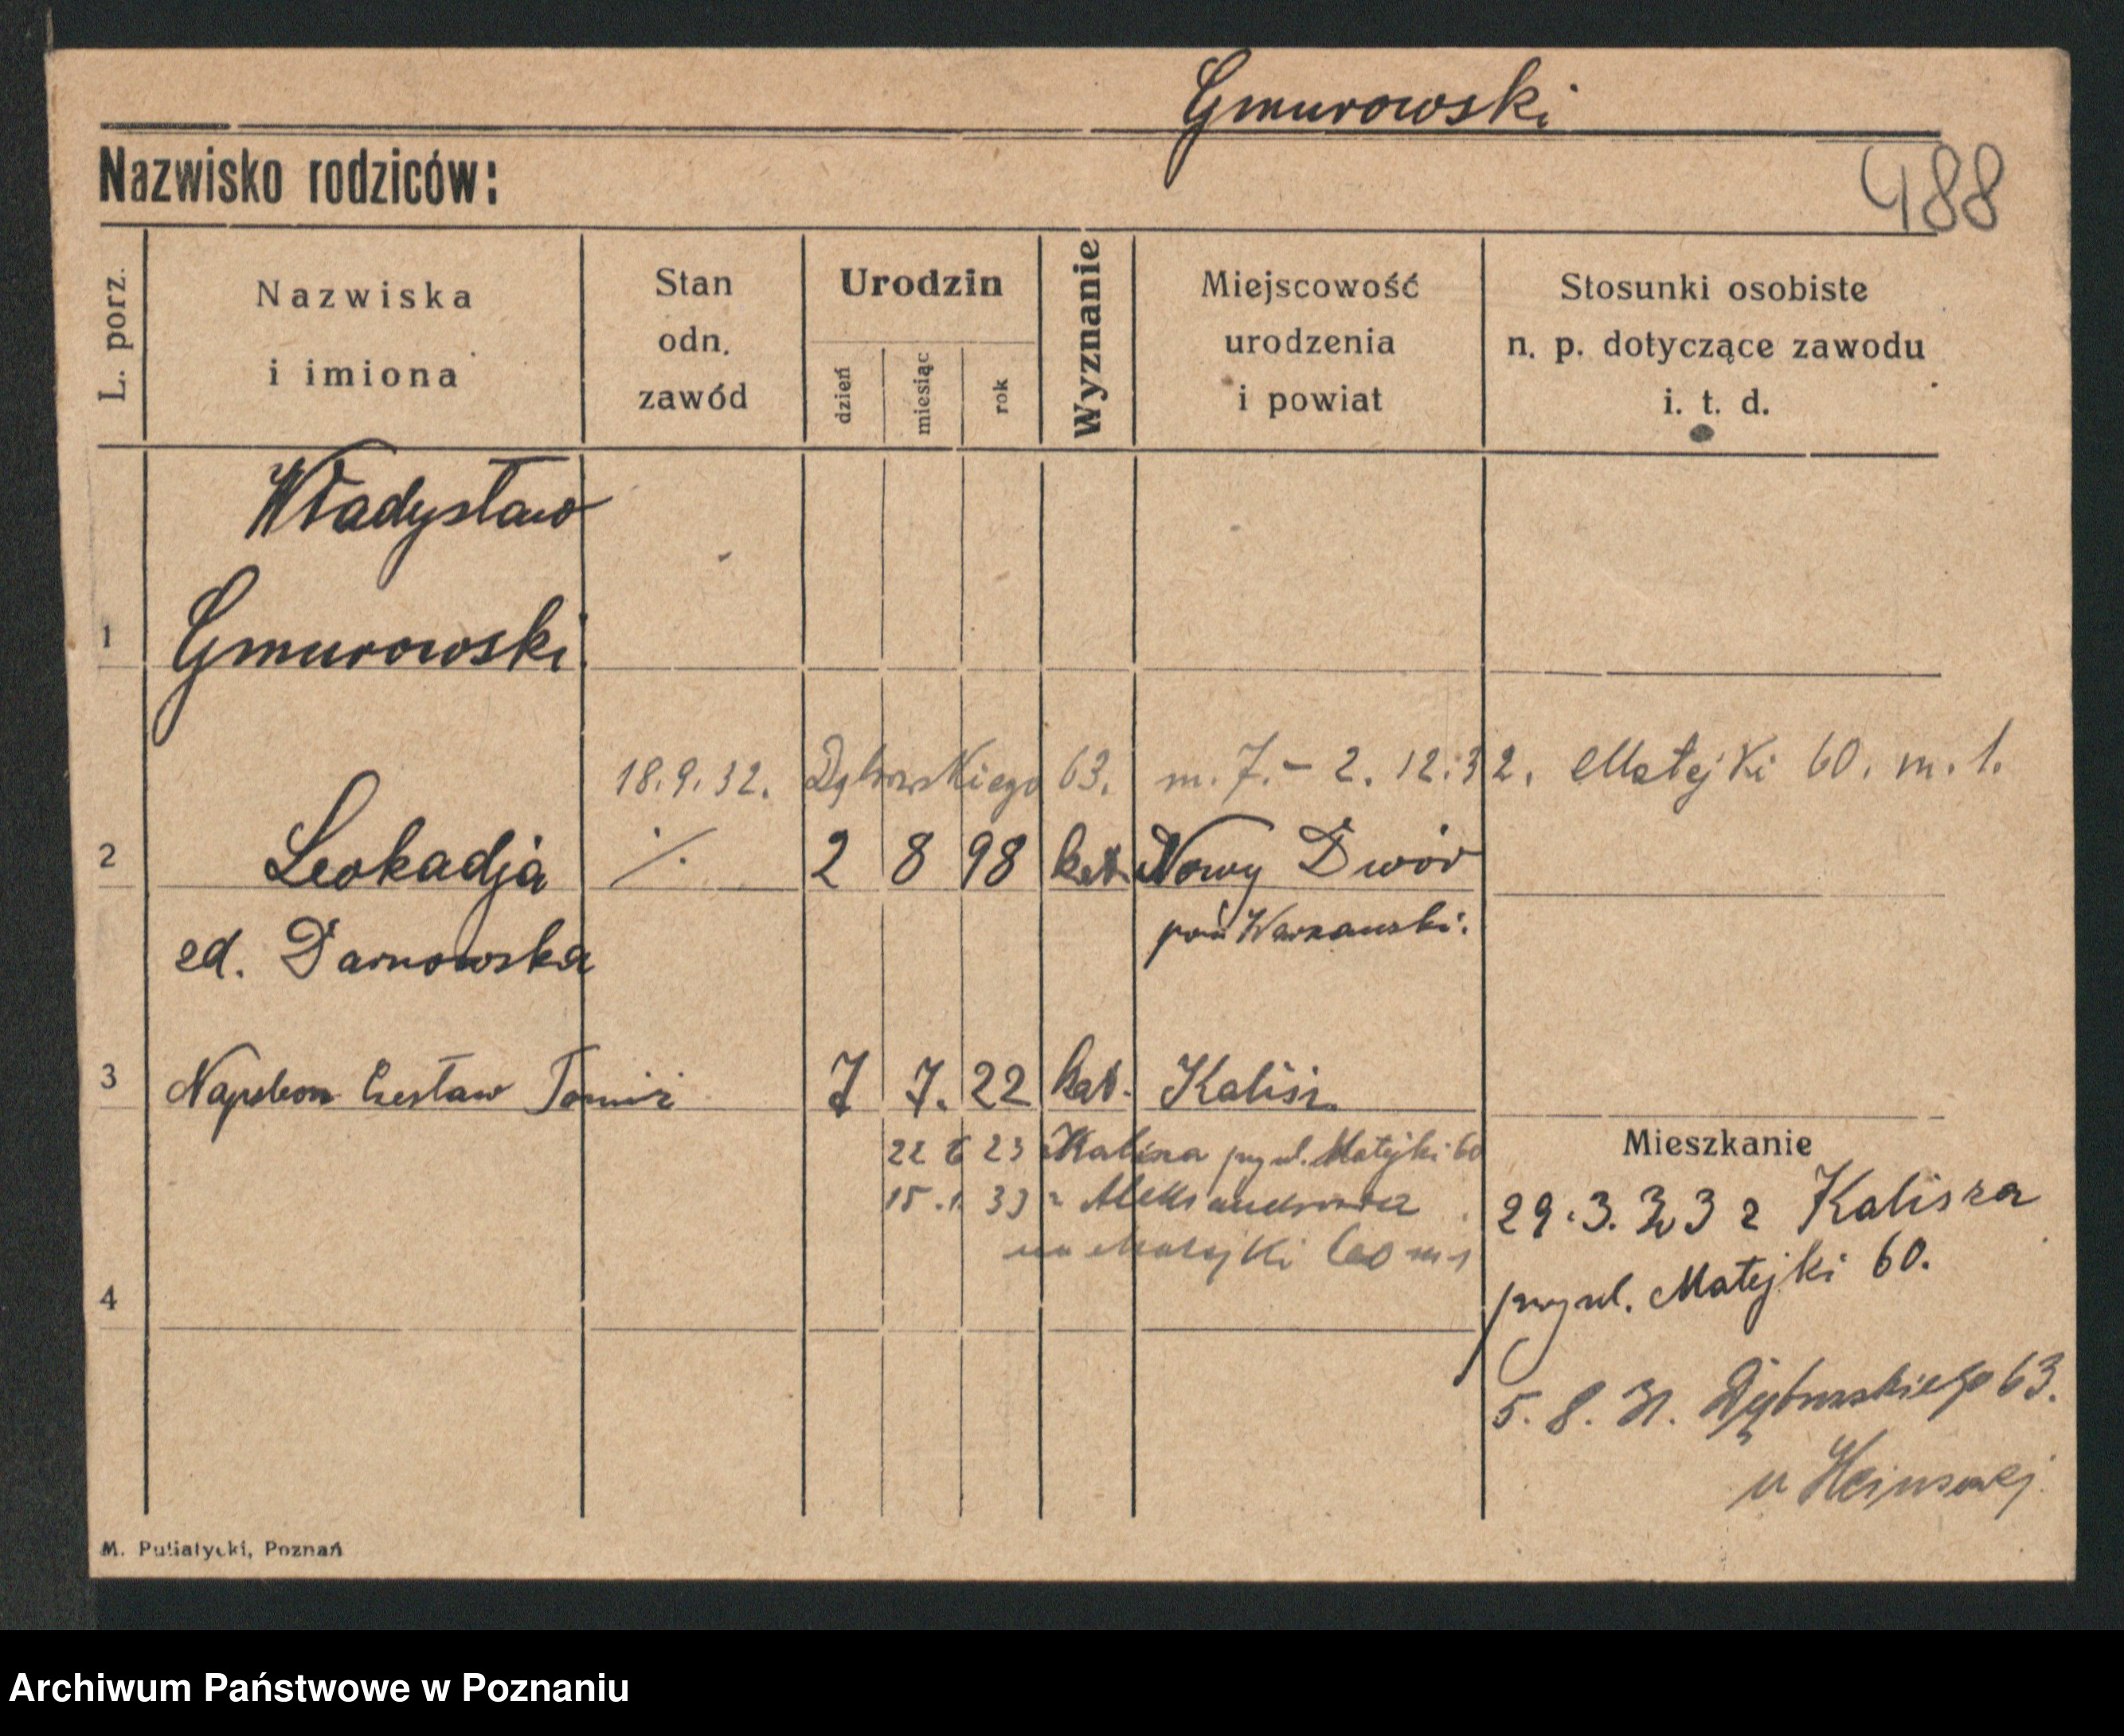 Gmurowski
Nazwisko rodziców:
488
L. porz.
Nazwiska
i imiona
Stan
odn.
zawód
Urodzin
dzień
miesiąc
rok
Wyznanie
Miejscowość
urodzenia
i powiat
Stosunki osobiste
n. p. dotyczące zawodu
i. t. d.
Władysław
1 Gmurowski
18.9.32. Dąbrowskiego 63. m. 7. – 2. 12.32. Matejki 60. m. 1.
2 Leokadja ·/. 2 8 98 kat. Nowy Dwór
zd. Darnowska pow Warszawski.
3 Napoleon Czesław 7 7. 22 kat. Kalisz
22 23 Kalisza przy ul. Matejki 60
15.1. 33 z Aleksandrowa
na Matejki 60 m 1
Mieszkanie
29.3. 33 z Kalisza
przy ul. Matejki 60.
4
5. 8. 31. Dąbrowskiego 63.
u
M. Putiatycki, Poznań
Archiwum Państwowe w Poznaniu